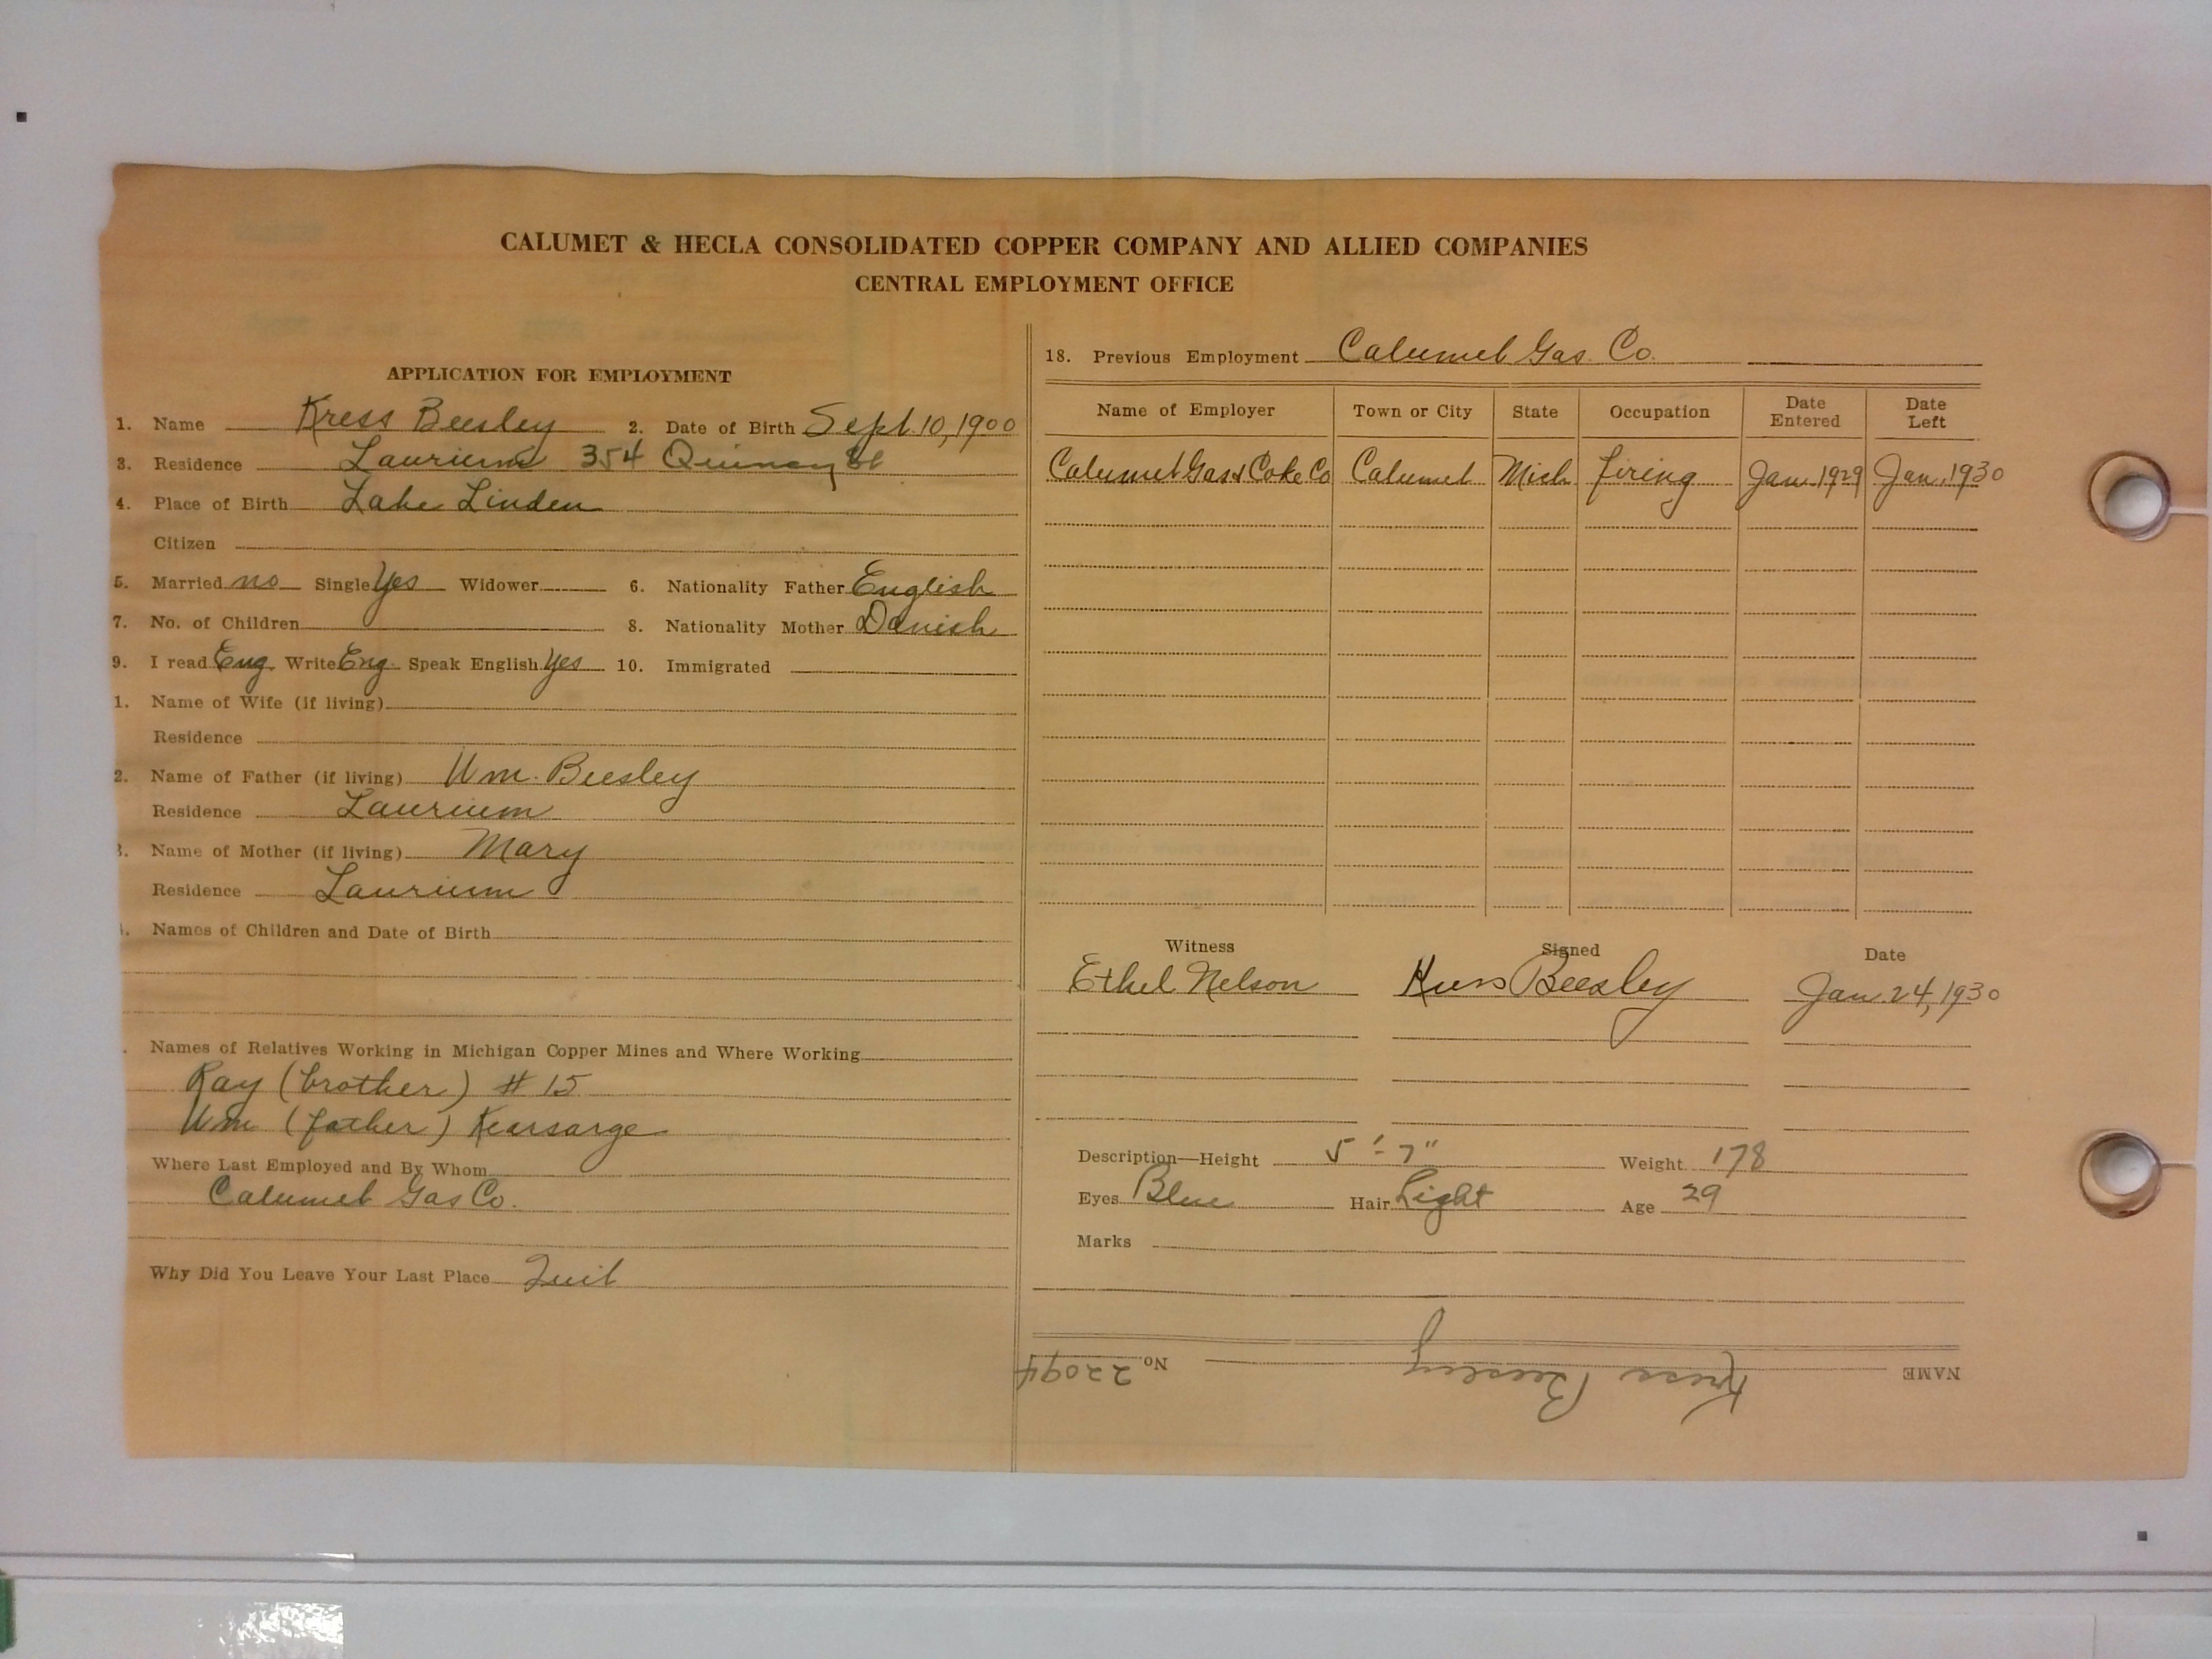 CALUMET & HECLA CONSOLIDATED COPPER COMPANY AND ALLIED COMPANIES
CENTRAL EMPLOYMENT OFFICE
APPLICATION FOR EMPLOYMENT
1. Name Kress Beesley 2. Date of Birth Sept. 10, 1900
3. Residence Laurium 354 Quincy St
4. Place of Birth Lake Linden
Citizen
5. Married no Single Yes Widower 6. Nationality Father English
7. No. of Children 8. Nationality Mother Danish
9. I read Eng. Write Eng. Speak English Yes 10. Immigrated
1. Name of Wife (if living)
Residence
2. Name of Father (if living) Wm. Beesley
Residence Laurium
3. Name of Mother (if living) Mary
Residence Laurium
Names of Children and Date of Birth
Names of Relatives Working in Michigan Copper Mines and Where Working
Ray (brother) # 15
Wm (father) Kearsarge
Where Last Employed and By Whom
Calumet Gas Co.
Why Did You Leave Your Last Place Quit
18. Previous Employment Calumet Gas Co.
Name of Employer Town or City State Occupation Date Entered Date Left
Calumet Gas & Coke Co Calumet Mich. firing Jan. 1929 Jan. 1930
Witness Signed Date
Ethel Nelson Kress Beesley Jan. 24, 1930
Description—Height 5'-7" Weight 178
Eyes Blue Hair Light Age 29
Marks
NAME Kress Beesley No 22094